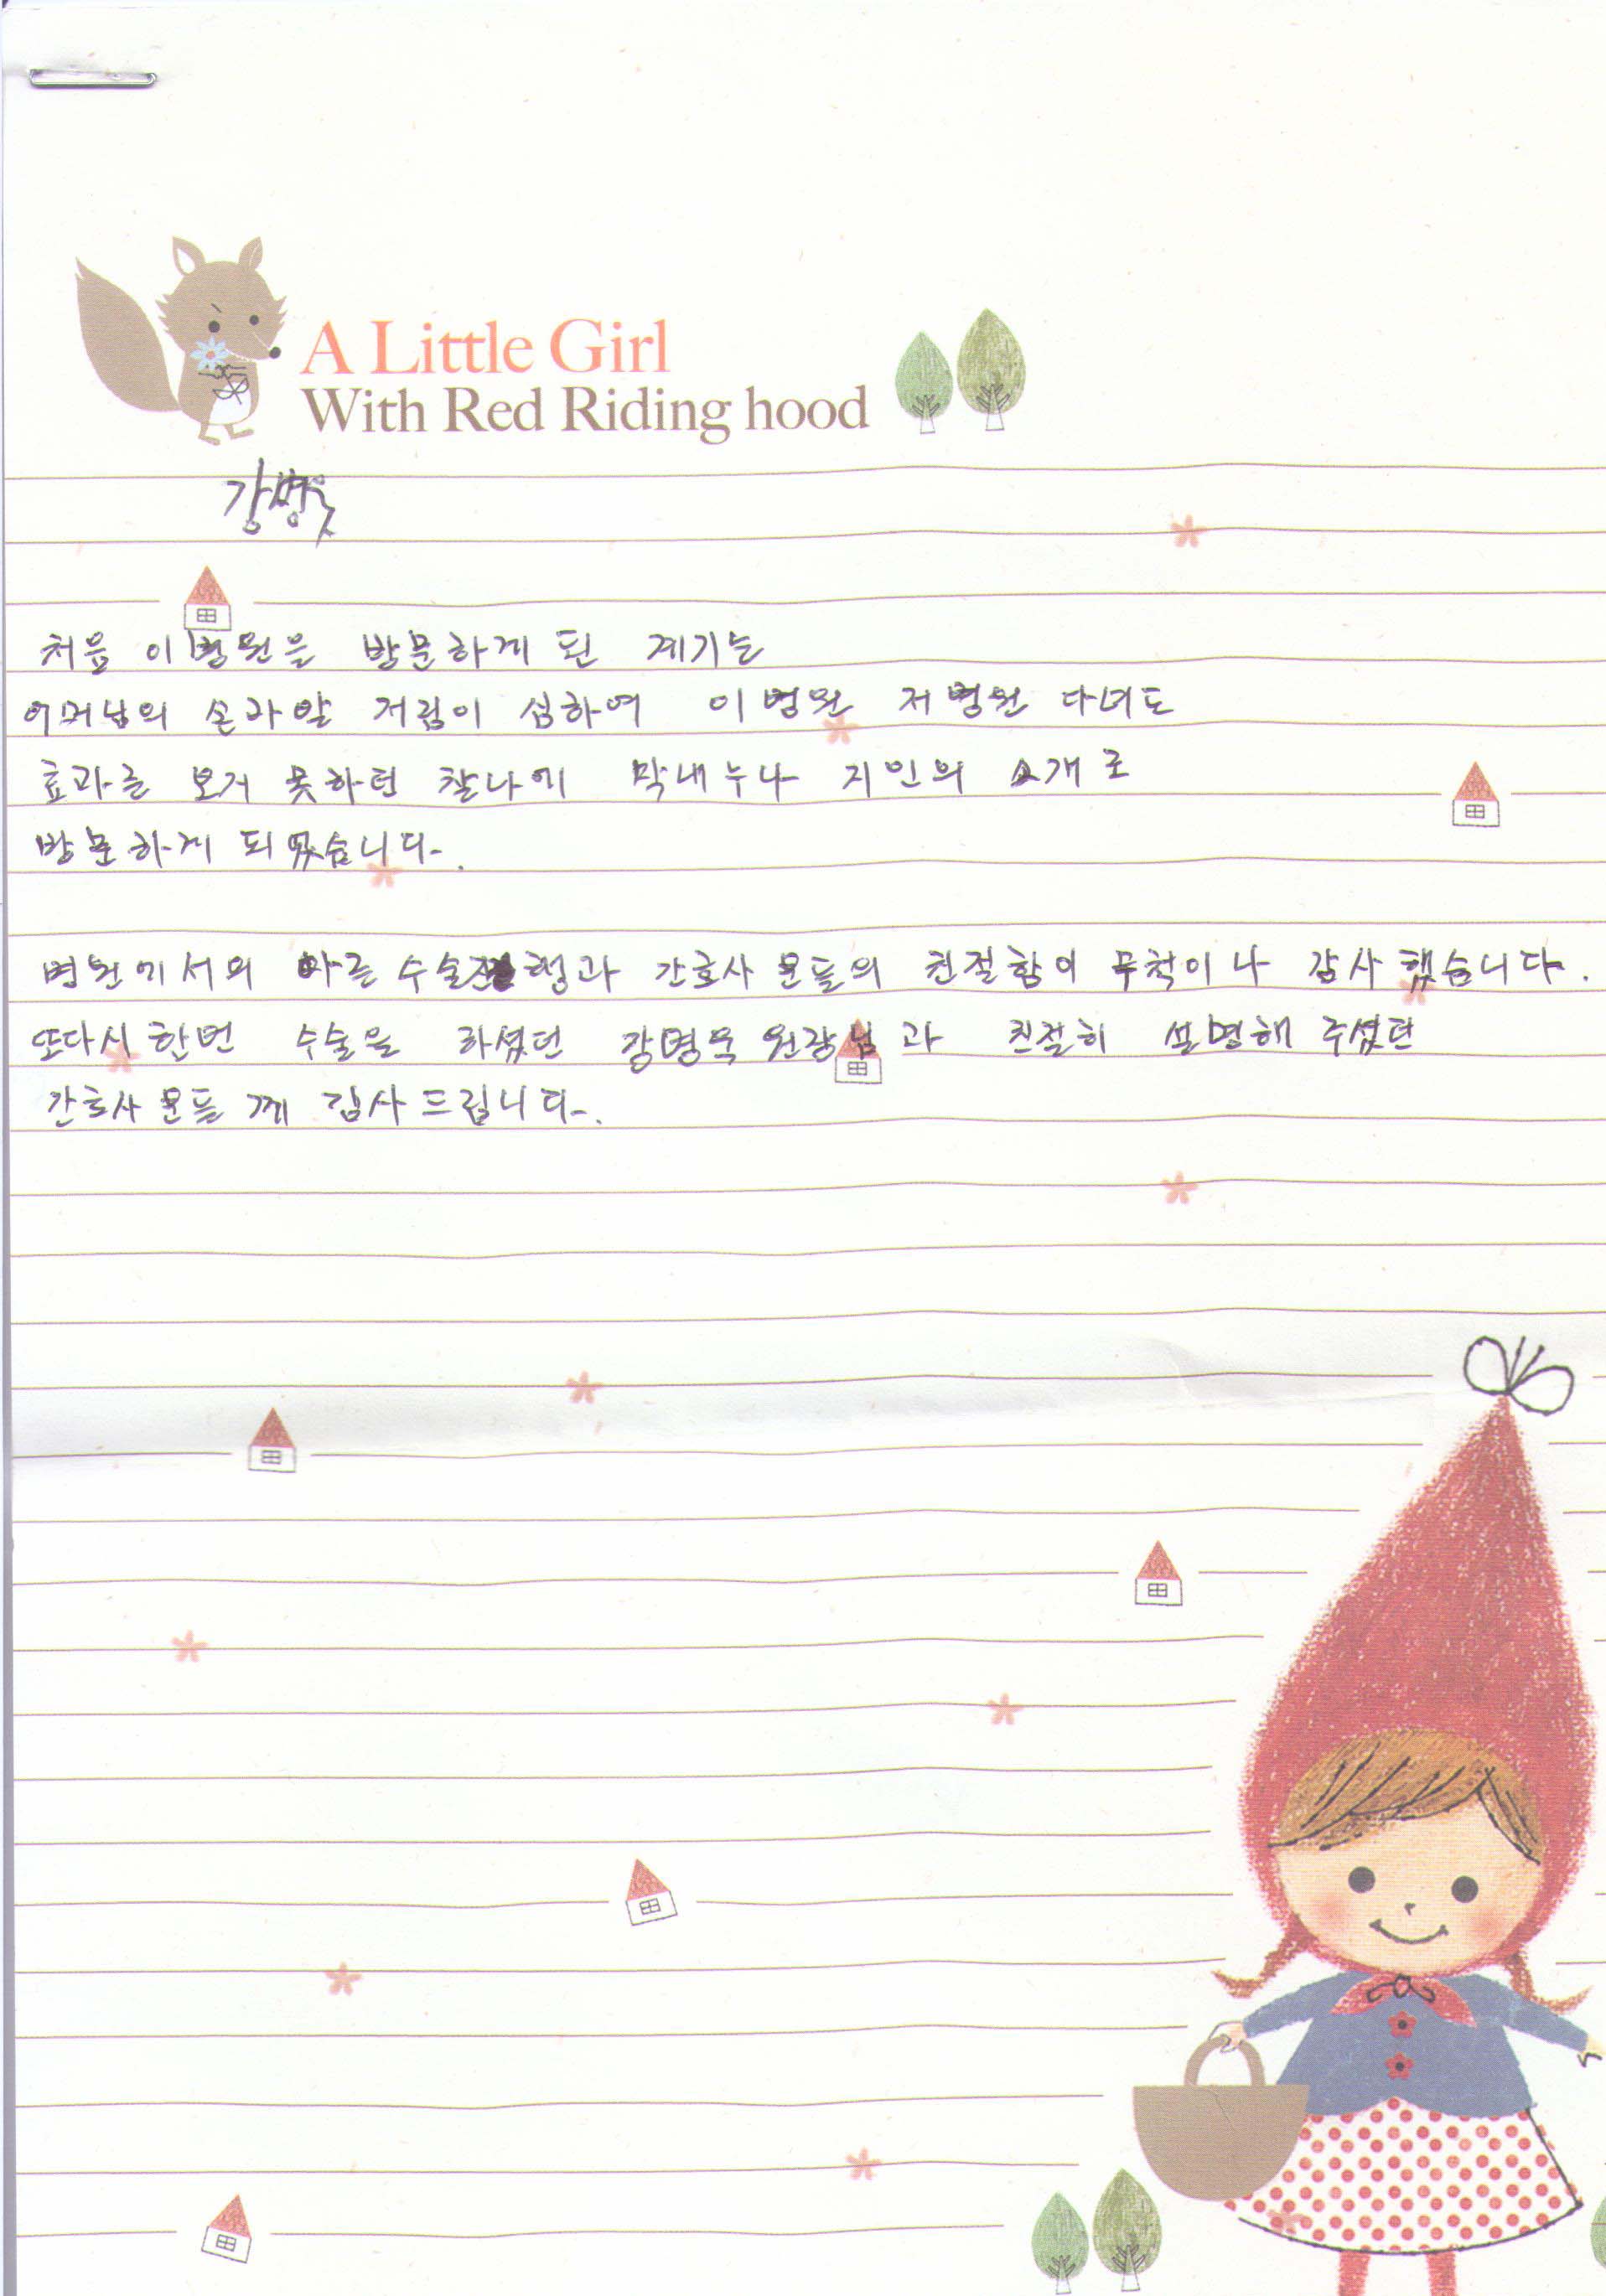 A Little Girl
With Red Riding hood
강병욱
처음 이병원을 방문하게 된 계기는
어머님의 손과발 저림이 심하여 이병원 저병원 다녀도
효과를 보지 못하던 찰나에 막내누나 지인의 소개로
방문하게 되었습니다.
병원에서의 빠른 수술진행과 간호사 분들의 친절함이 무척이나 감사했습니다.
또다시 한번 수술을 하셨던 강병욱 원장님과 친절히 설명해 주셨던
간호사 분들께 감사드립니다.